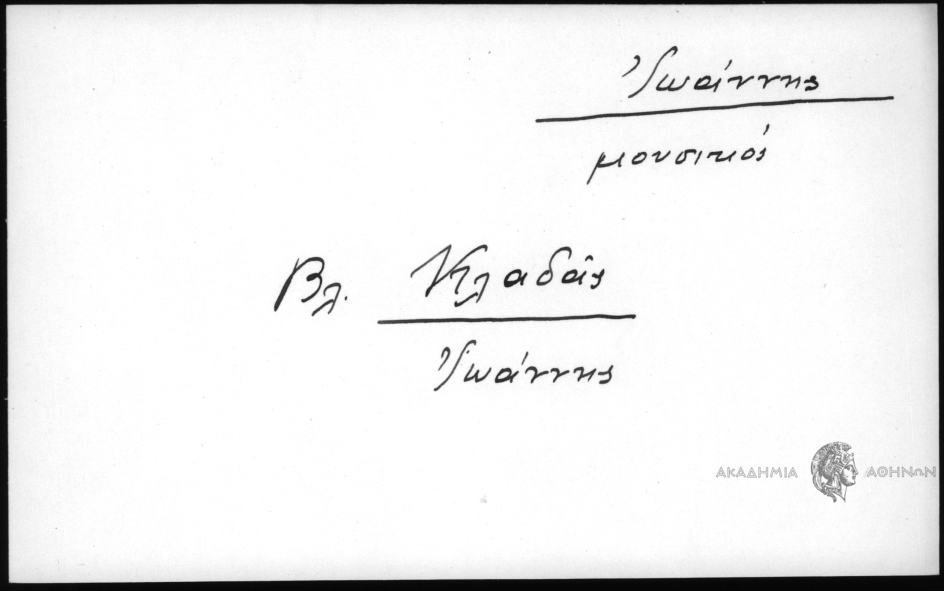 Ἰωάννης
μουσικός
Βλ. Κλαδᾶς
Ἰωάννης
ΑΚΑΔΗΜΙΑ ΑΘΗΝΩΝ